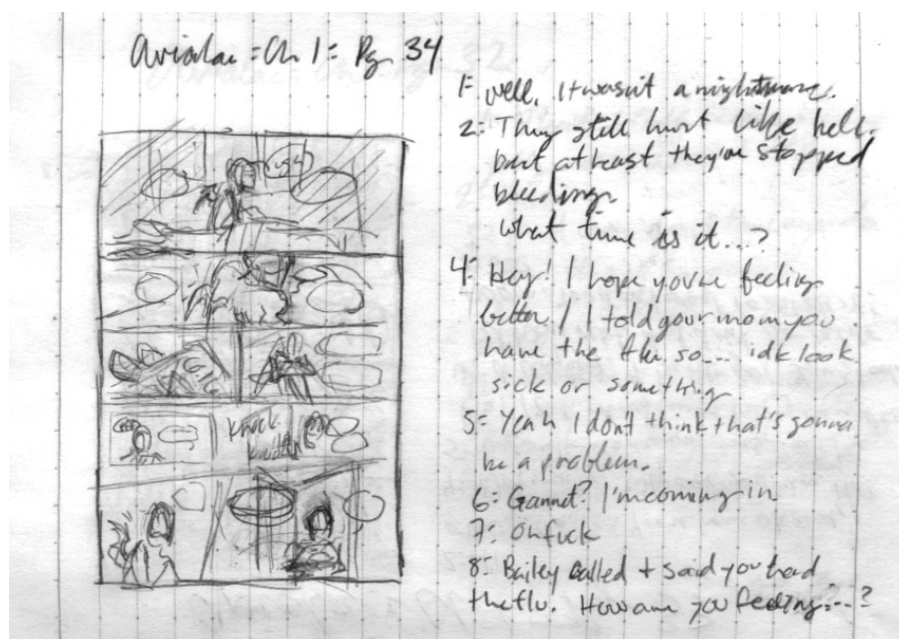 Avialae = Ch 1 = Pg 34
1: well, it wasn't a nightmare.
2: They still hurt like hell.
but at least they've stopped
bleeding.
what time is it...?
4: Hey! I hope you're feeling
better! I told your mom you
have the flu so.... idk look
sick or something
5: Yeah I don't think that's gonna
be a problem.
6: Gannet? I'm coming in
7: Oh fuck
8: Bailey called + said you had
the flu. How are you feeling?...?
knock